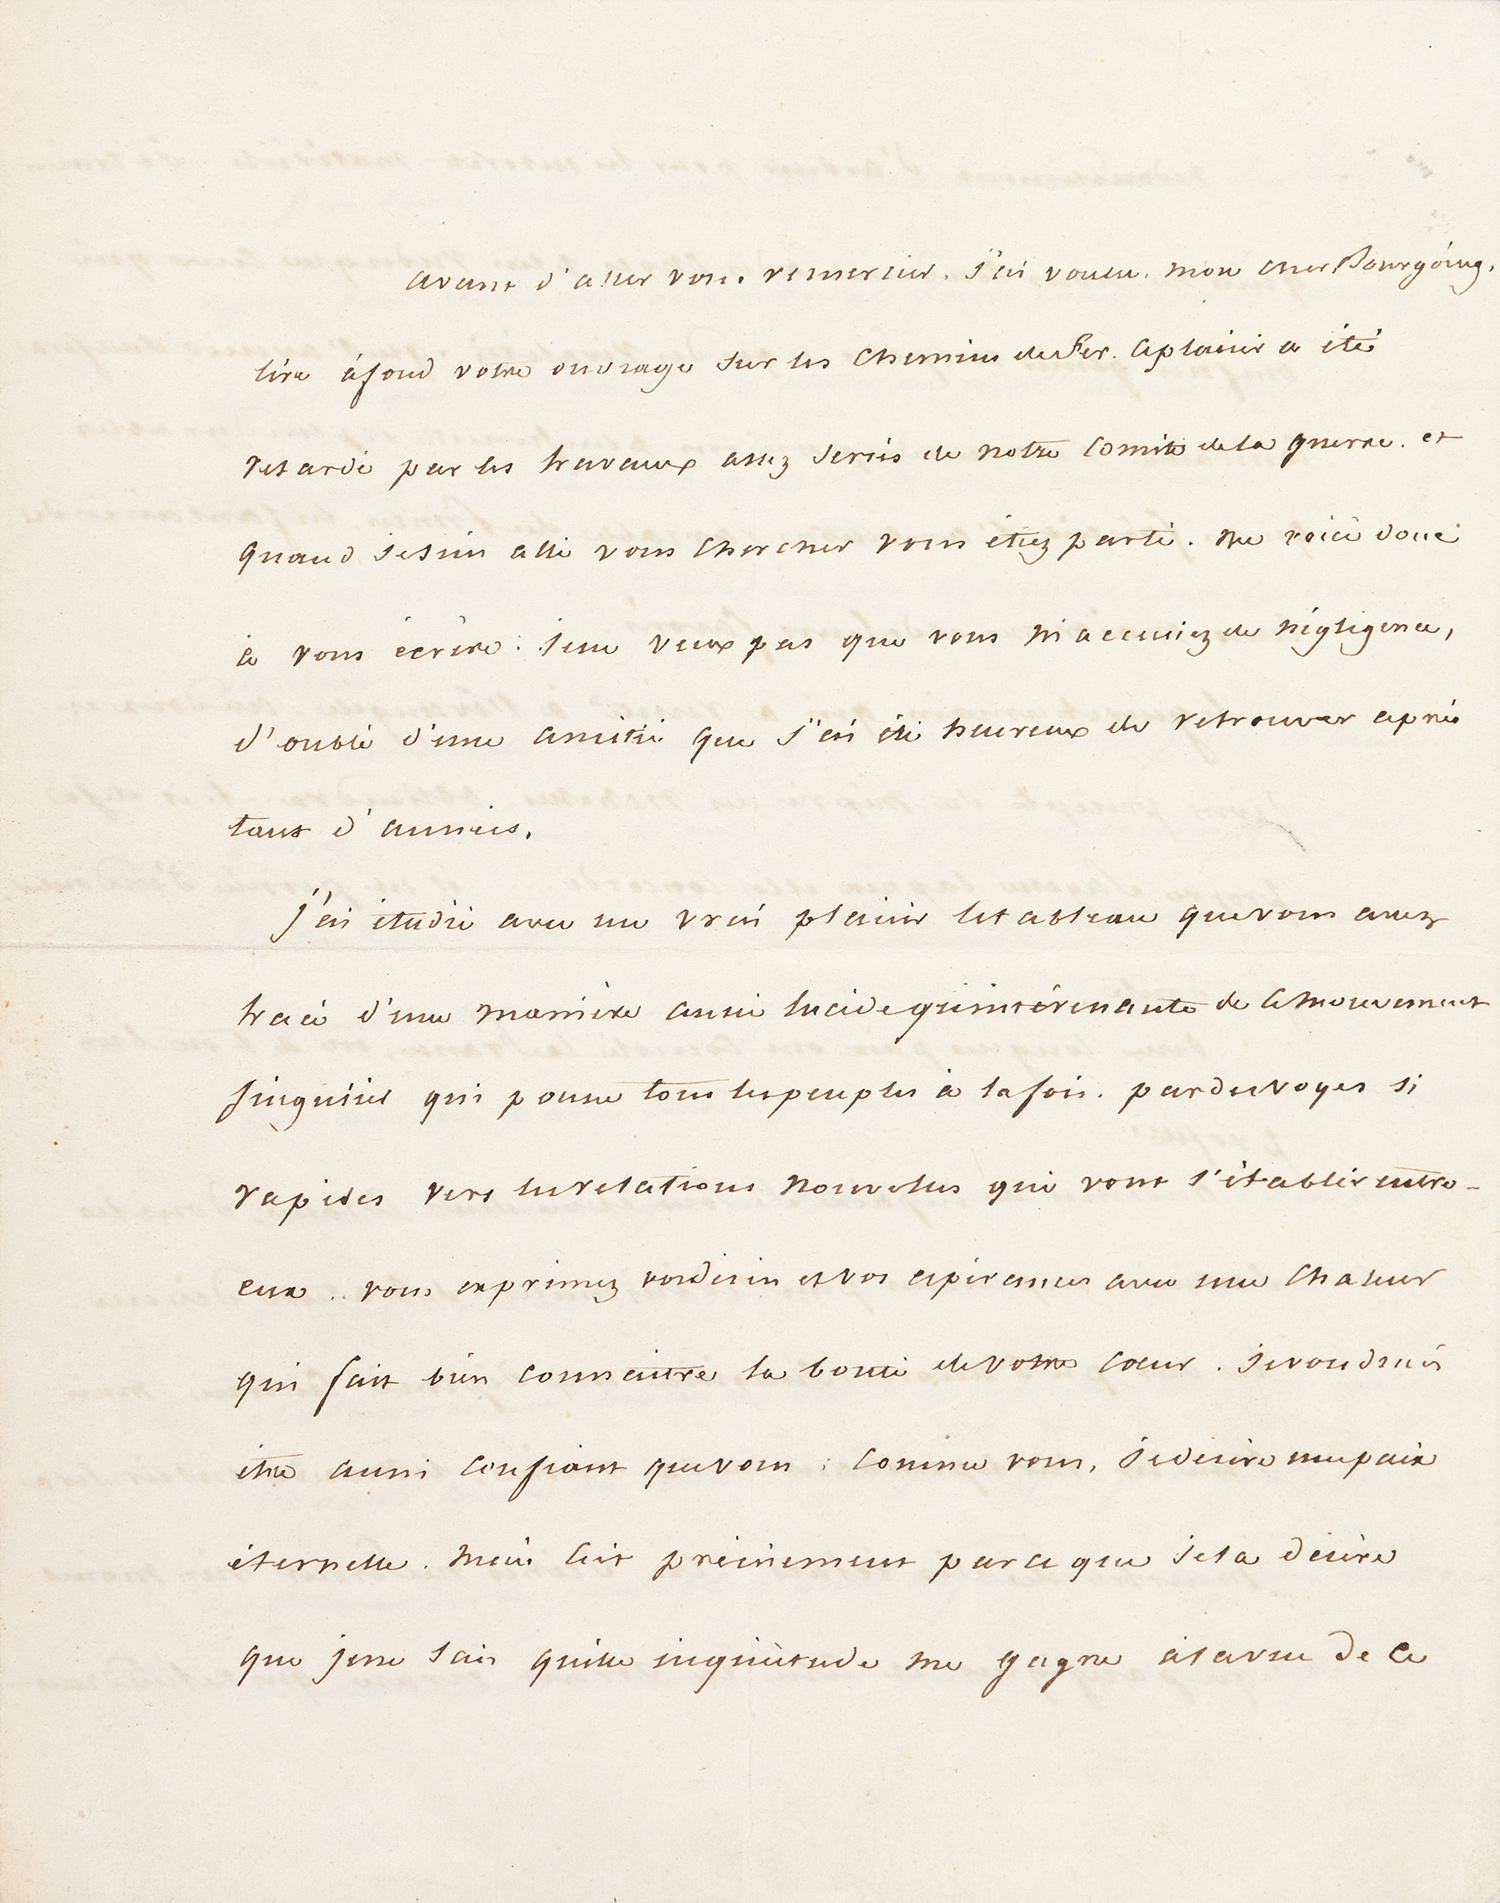 avant d'aller vous remercier, j'ai voulu, mon cher Bourgoing,
lire à fond votre ouvrage sur les chemins de fer. ce plaisir a été
retardé par les travaux assez serrés de notre comité de la guerre. et
quand je suis allé vous chercher vous étiez parti. me voici donc
à vous écrire : je ne veux pas que vous m'accusiez de négligence,
d'oubli d'une amitié que j'ai été heureux de retrouver après
tant d'années.
j'ai étudié avec un vrai plaisir le tableau que vous avez
tracé d'une manière aussi lucide qu'intéressante de ce mouvement
singulier qui pousse tous les peuples à la fois. par des voyes si
rapides vers les relations nouvelles qui vont s'établir entre-
eux .. vous exprimez vos désirs et vos espérances avec une chaleur
qui fait bien connaitre la bonté de votre cœur. je voudrais
être aussi confiant que vous : comme vous, je désire une paix
éternelle. mais c'est précisément parce que je la désire
que je ne sais quelle inquiètude me gagne à la vue de ce